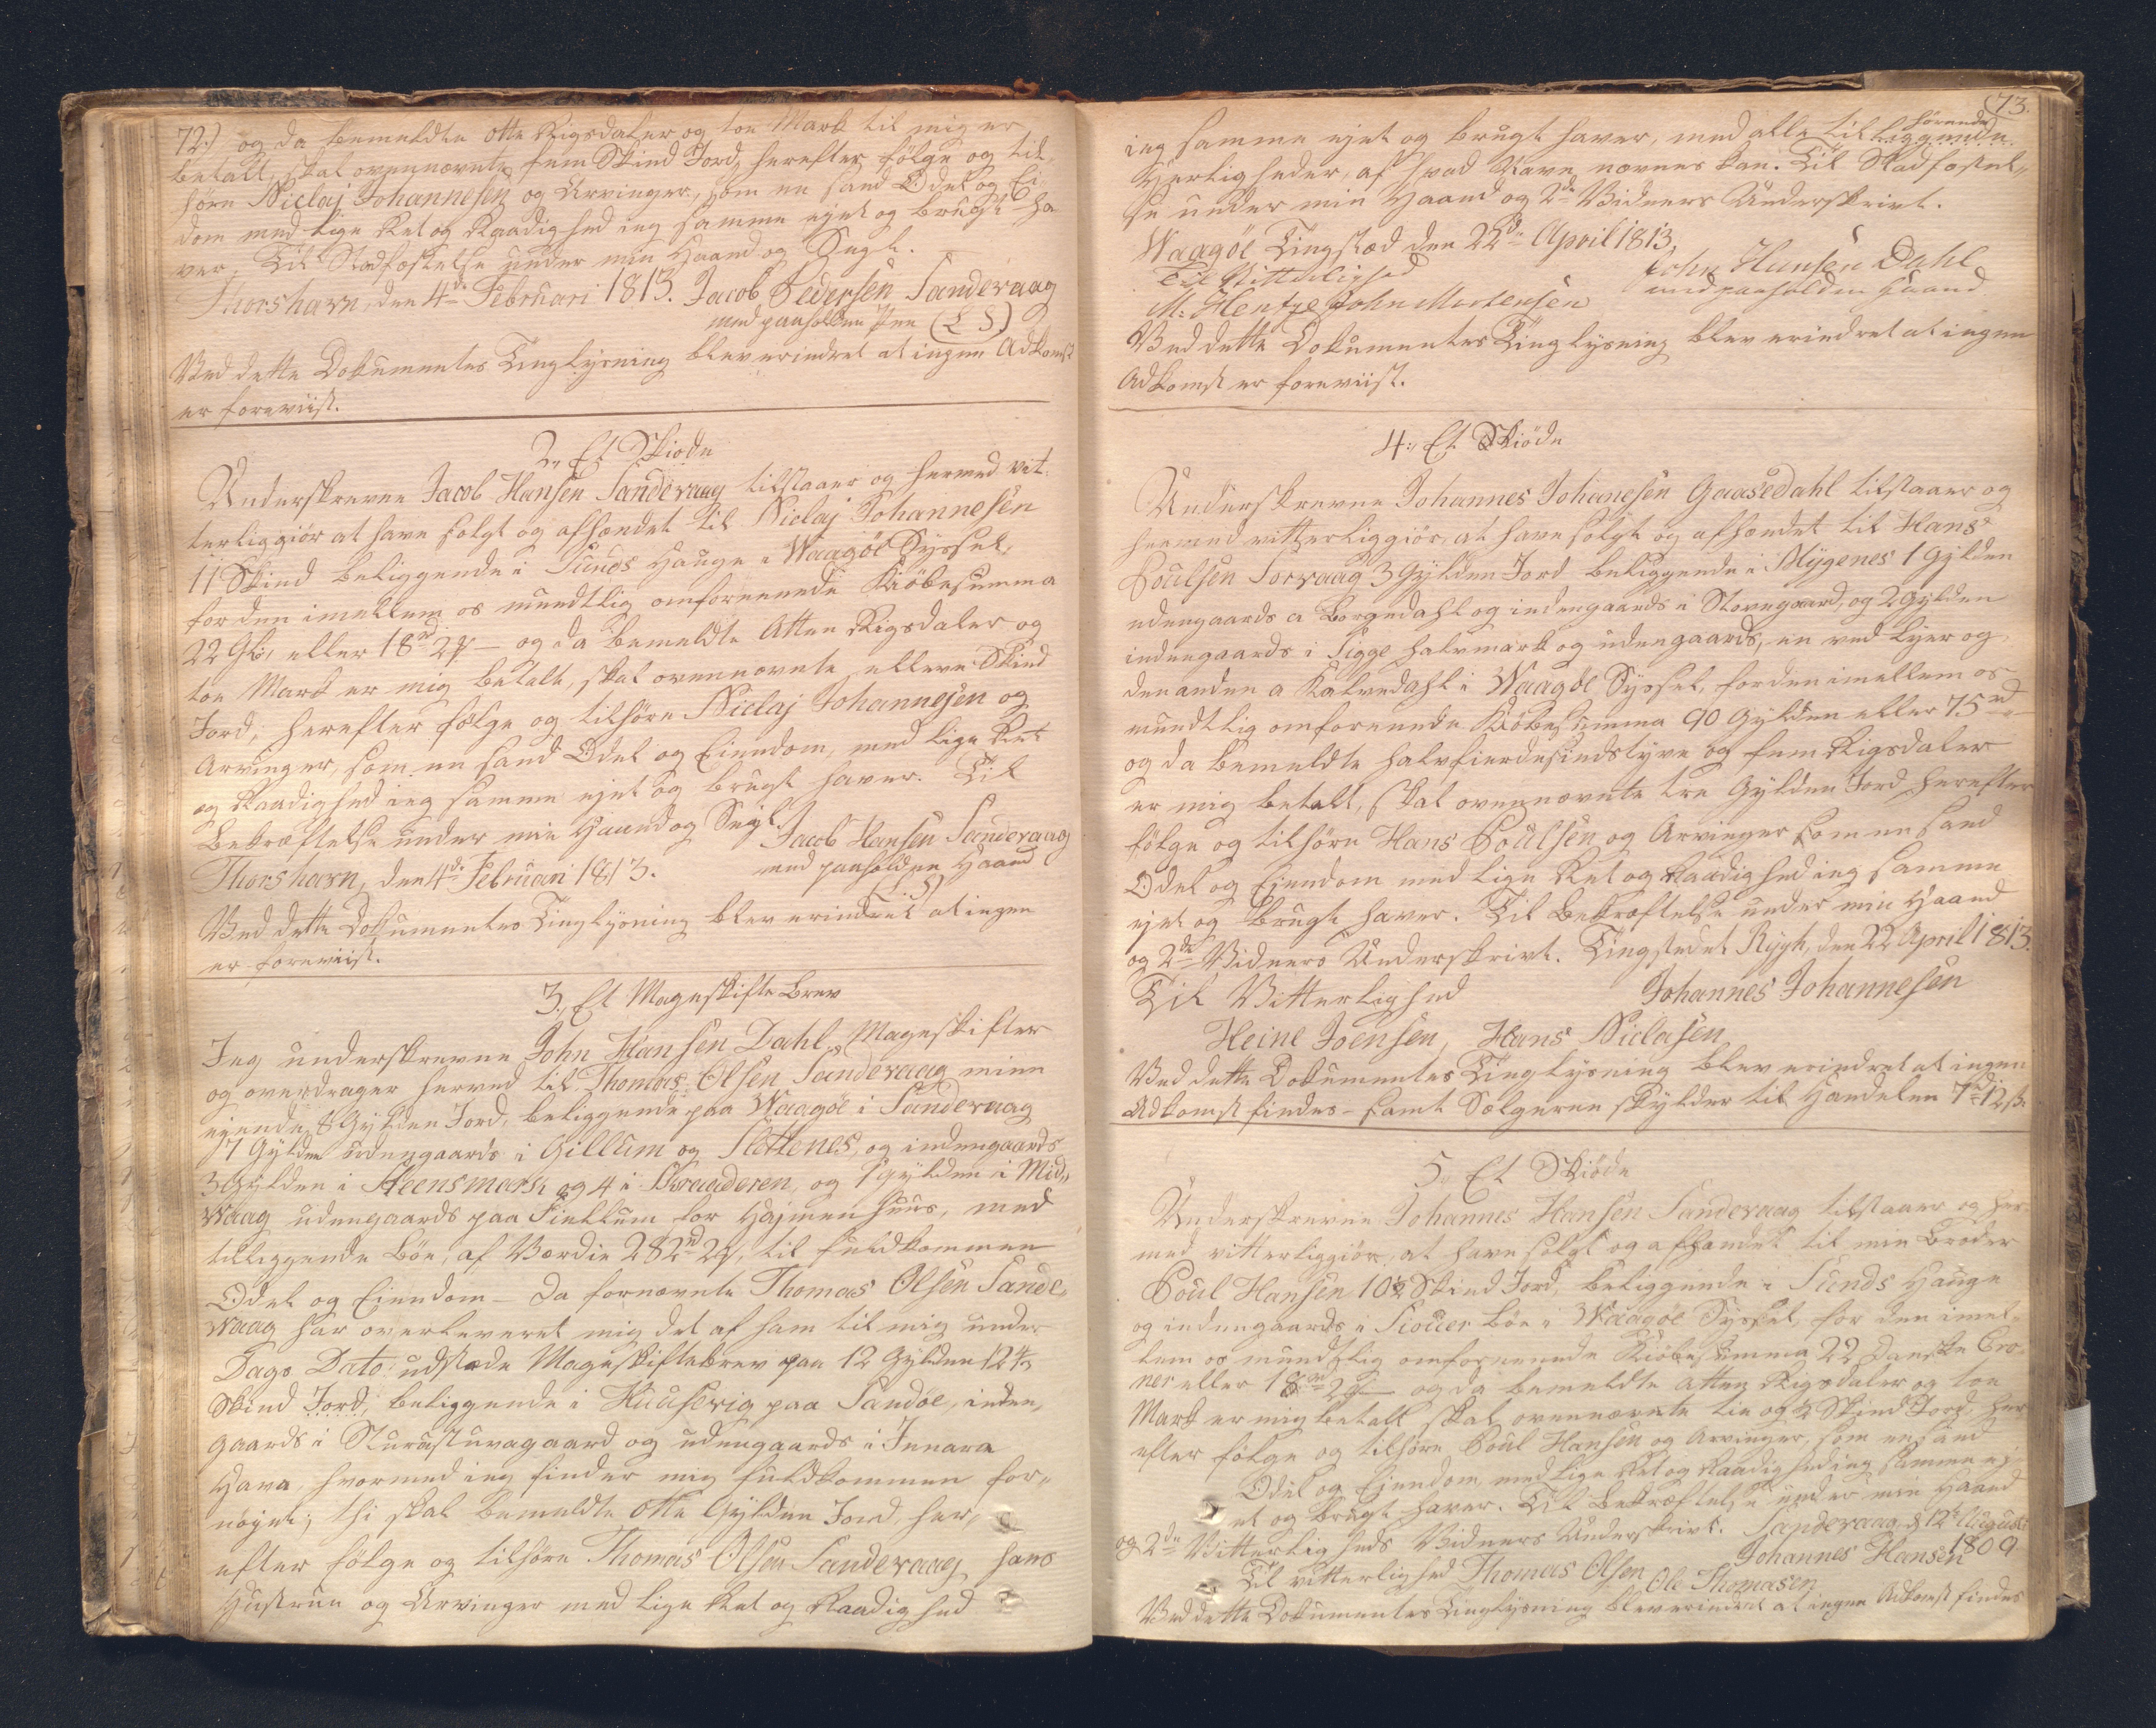 72.) og da bemeldte Otte Rigsdaler og toe Mark til mig er
betalt, skal ovennævnte fem Skind Jord, herefter følge og til-
høre Niclaj Johannesen og Arvinger, som en sand Odel og Ei-
dom med lige Ret og Raadighed ieg samme ejet og brugt ha-
ver. Til Stadfæstelse under min Haand og Segl.
Thorshavn, den 4de Februari 1813. Jacob Pedersen Sandevaag
med paaholden Pen (L S)
Ved dette Dokumentes Tinglysning blev erindret at ingen Adkomst
er foreviist.
2, Et Skiøde
Underskrevne Jacob Hansen Sandevaag tilstaaer og hermed vit-
terliggiør at have solgt og afhændet til Niclaj Johannesen
11 Skind beliggende i Sunds Hauge i Waagøe Syssel,
for den imellem os mundtlig omforenende Kiøbesumma
22 Gl:, eller 18rd 2 ₰ — og da bemeldte Atten Rigsdaler og
toe Mark er mig betalt, skal ovennævnte elleve Skind
Jord, herefter følge og tilhøre Niclaj Johannesen og
Arvinger, som en sand Odel og Eiendom, med lige Ret
og Raadighed ieg samme ejet og brugt haver. Til
Bekræftelse under min Haand og Segl.
Jacob Hansen Sandevaag
Thorshavn, den 4de Februari 1813.
med paaholden Haand
(L. S)
Ved dette Dokumentes Tinglysning blev erindret at ingen
er foreviist.
3, Et Mageskifte Brev
Jeg underskrevne John Hansen Dahl, Mageskifter
og overdrager herved til Thomas Olsen Sandevaag mine
ejende 8 Gylden Jord, beliggende paa Waagøe i Sandevaag
7 Gylden udengaards i Gillum og Slettenes, og indengaards
3 Gylden i Steensmark og 4 i Skraaderen, og 1 Gylden i Mid-
Waag udengaards paa Fiellum for Hajmen huus, med
tilliggende Bøe, af Værdie 282rd 2 ₰, til fuldkommen
Odel og Eiendom — Da fornævnte Thomas Olsen Sande-
Waag har overleveret mig det af ham til mig under
Dags Dato udstæde Mageskiftebrev paa 12 Gylden 12 4/5
Skind Jord, beliggende i Huusevig paa Sandøe, inden-
gaards i Sturustuvagaard og udengaards i Innara
Hava, hvormed ieg finder mig fuldkommen for-
nøyet; thi skal bemeldte Otte Gylden Jord, her-
efter følge og tilhøre Thomas Olsen Sandevaag, hans
Hustrue og Arvinger med lige Ret og Raadighed
73.
ieg samme ejet og brugt haver, med alle til liggende hørende
Herligheder, af hvad Navn nævnes kan. Til Stadfæstel-
se under min Haand og 2de Vidners Underskrivt.
Waagøe Tingstæd den 22de April 1813.
John Hansen Dahl
Til Vitterlighed
med paaholden Haand
M: Hentze John Mortensen
Ved dette Dokumentes Tinglysning blev erindret at ingen
Adkomst er foreviist.
4, Et Skiøde
Underskrevne Johannes Johanesen Gaasedahl tilstaaer og
hermed vitterliggiør, at have solgt og afhændet til Hans
Poulsen Sorvaag 3 Gylden Jord beliggende i Mygenes 1 Gylden
udengaards a Borgedahl og indengaards i Stovegaard, og 2 Gylden
indengaards i Sigge halvmark og udengaards, en ved Lyer og
den anden a Kalvedahl i Waagøe Syssel, for den imellem os
mundtlig omforenende Kiøbesumma 90 Gylden eller 75rd
og da bemeldte halvfierdesindstyve og fem Rigsdaler
er mig betalt, skal ovennævnte tre Gylden Jord herefter
følge og tilhøre Hans Poulsen og Arvinger som en sand
Odel og Ejendom med lige Ret og Raadighed ieg samme
ejet og brugt haver. Til Bekræftelse under min Haand
og 2de Vidners Underskrivt. Tingstedet Rygh, den 22 April 1813.
Til Vitterlighed
Johannes Johannesen
Heine Joensen, Hans Niclasen
Ved dette Dokumentes Tinglysning blev erindret at ingen
Adkomst findes — samt Sælgeren skylder til Handelen 7rd 12 s.
5, Et Skiøde
Underskrevne Johannes Hansen Sandevaag tilstaaer og her-
med vitterliggiør, at have solgt og afhændet til min Broder
Poul Hansen 10½ Skind Jord, beliggende i Sunds Hauge
og indengaards i Siover bøe i Waagøe Syssel, for den imel-
lem os mundtlig omforenende Kiøbesumma 22 Danske Cro-
ner eller 18rd 2 ₰ — og da bemeldte Atten Rigsdaler og toe
Mark er mig betalt skal ovennævnte tie og ½ Skind Jord, her-
efter følge og tilhøre Poul Hansen og Arvinger, som en sand
Odel og Ejendom, med lige Ret og Raadighed ieg samme ej-
et og brugt haver. Til Bekræftelse under min Haand
og 2de Vitterligheds Vidners Underskrivt. Sandevaag, d 12te August
1809
Johannes Hansen
Til vitterlighed Thomas Olsen Ole Thomasen
Ved dette Dokumentes Tinglysning blev erindret at ingen Adkomst findes